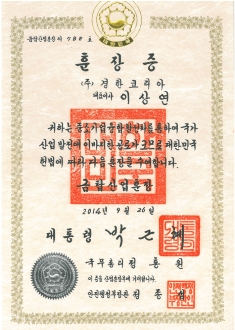 훈 장 증
(주) 경한코리아
대표이사 이 상 연
귀하는 중소기업 융합 발전을 통하여 국가
산업 발전에 이바지한 공로가 크므로 대한민국
헌법에 따라 다음 훈장을 수여합니다.
금탑산업훈장
2014년 9월 26일
대통령 박근혜
국무총리 정홍원
이 증을 산업훈장부에 기입합니다.
안전행정부장관 정종섭